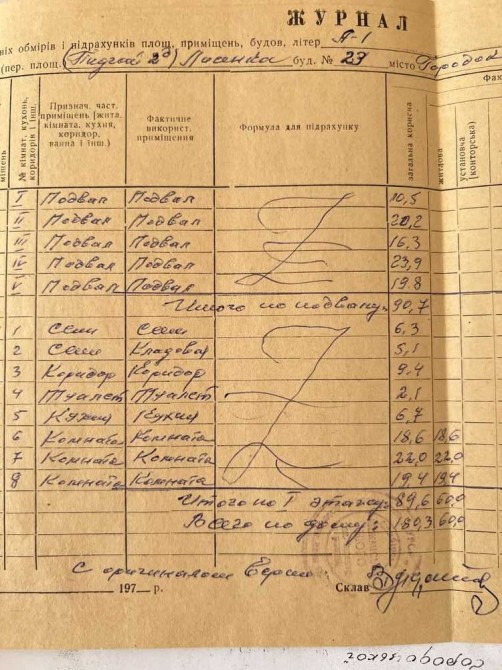 ЖУРНАЛ
ніх обмірів і підрахунків площ, приміщень, будов, літер А-I
(пер. площ.) Лисенка буд. № 23 місто Городок
№ кімнат, кухонь, коридорів і інш.
Признач. част. приміщень [жита. кімната, кухня, коридор, ванна і інш.]
Фактичне використ. приміщення
Формула для підрахунку
загальна корисна
житлова
установча (конторська)
I Подвал Подвал 10,5
II Подвал Подвал 20,2
III Подвал Подвал 16,3
IV Подвал Подвал 23,9
V Подвал Подвал 19.8
Итого по подвалу: 90,7
1 Сени Сени 6,3
2 Сени Кладовая 5,1
3 Коридор Коридор 9,4
4 Туалет Туалет 2,1
5 Кухня Кухня 6,7
6 Комната Комната 18,6 18,6
7 Комната Комната 22,0 22,0
8 Комната Комната 19,4 19,4
Итого по I этажу: 89,6 60,0
Всего по дому: 180,3 60,0
С оригиналом верно
197 р. Склав